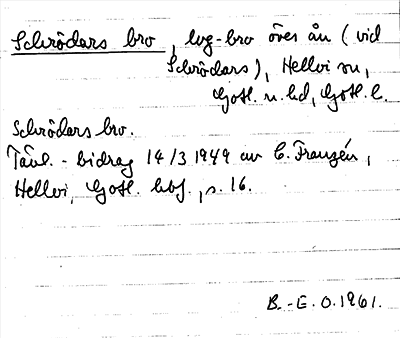 Schrödars bro, lvg-bro över ån (vid
Schrödars), Hellvi sn,
Gotl. n. hd, Gotl. l.
Schrödars bro.
Tävl.-bidrag 14/3 1949 av C. Franzén,
Hellvi, Gotl. hbf., s. 16.
B.-E. O. 1961.